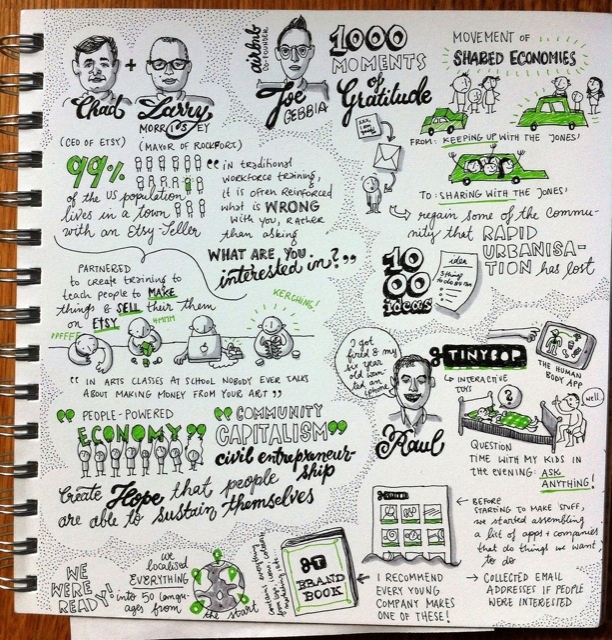 Chad + Larry
MORRISEY
(CEO OF ETSY) (MAYOR OF ROCKFORD)
99%
of the US population
lives in a town
with an Etsy-Seller
"in traditional
workforce training,
it is often reinforced
what is WRONG
with you, rather
than asking
WHAT ARE YOU
interested in?"
PARTNERED
to create training to
teach people to MAKE
things & SELL their them
on ETSY
PFFFF
HMMM
KERCHING!
"IN ARTS CLASSES AT SCHOOL NOBODY EVER TALKS
ABOUT MAKING MONEY FROM YOUR ART"
"PEOPLE-POWERED
ECONOMY"
"COMMUNITY
CAPITALISM"
civil entrepreneur-
ship
Create Hope that people
are able to sustain themselves
airbnb
CO-FOUNDER
Joe
GEBBIA
1000
MOMENTS
of
Gratitude
1000
ideas
idea
3 things
to do
MOVEMENT OF
SHARED ECONOMIES
FROM: KEEPING UP WITH THE JONES'
TO: SHARING WITH THE JONES'
regain some of the commu-
nity that RAPID
URBANISA-
TION has lost
I got
fired & my
six year
old
iphone
TINYBOP
Raul
INTERACTIVE
TOYS
THE HUMAN
BODY APP
?
well..
QUESTION
TIME WITH MY KIDS IN
THE EVENING: ASK
ANYTHING!
BEFORE
STARTING TO MAKE STUFF,
we started assembling
a list of apps + companies
that do things we want
to do
→ COLLECTED EMAIL
ADDRESSES IF PEOPLE
WERE INTERESTED
WE
WERE
READY!
we
localised
EVERYTHING
into 50 langu-
ages from
the start
BRAND
BOOK
I RECOMMEND
EVERY YOUNG
COMPANY MAKES
ONE OF THESE!